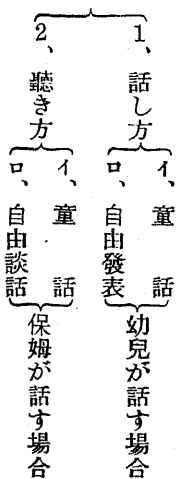 1、話し方
イ、童話
ロ、自由發表
幼兒が話す場合
2、聽き方
イ、童話
ロ、自由談話
保姆が話す場合